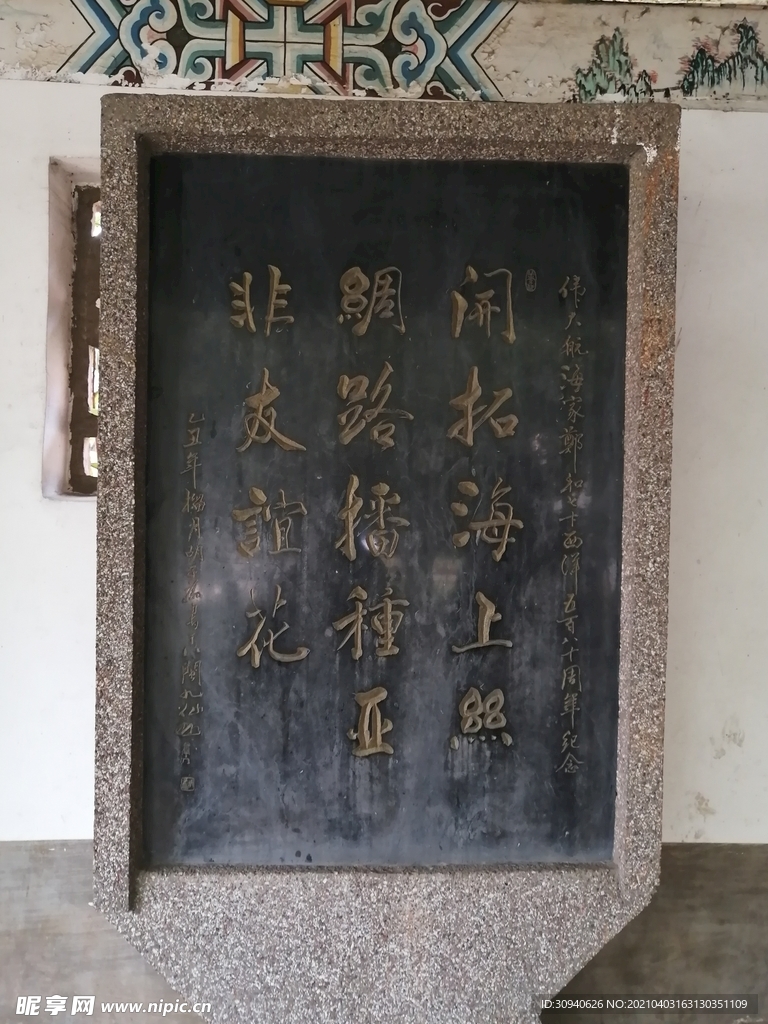 伟大航海家鄭和七下西洋五百八十周年纪念
開拓海上絲
綢路播種亚
非友誼花
乙丑年榴月
昵享网 www.nipic.cn
ID:30940626 NO:20210403163130351109